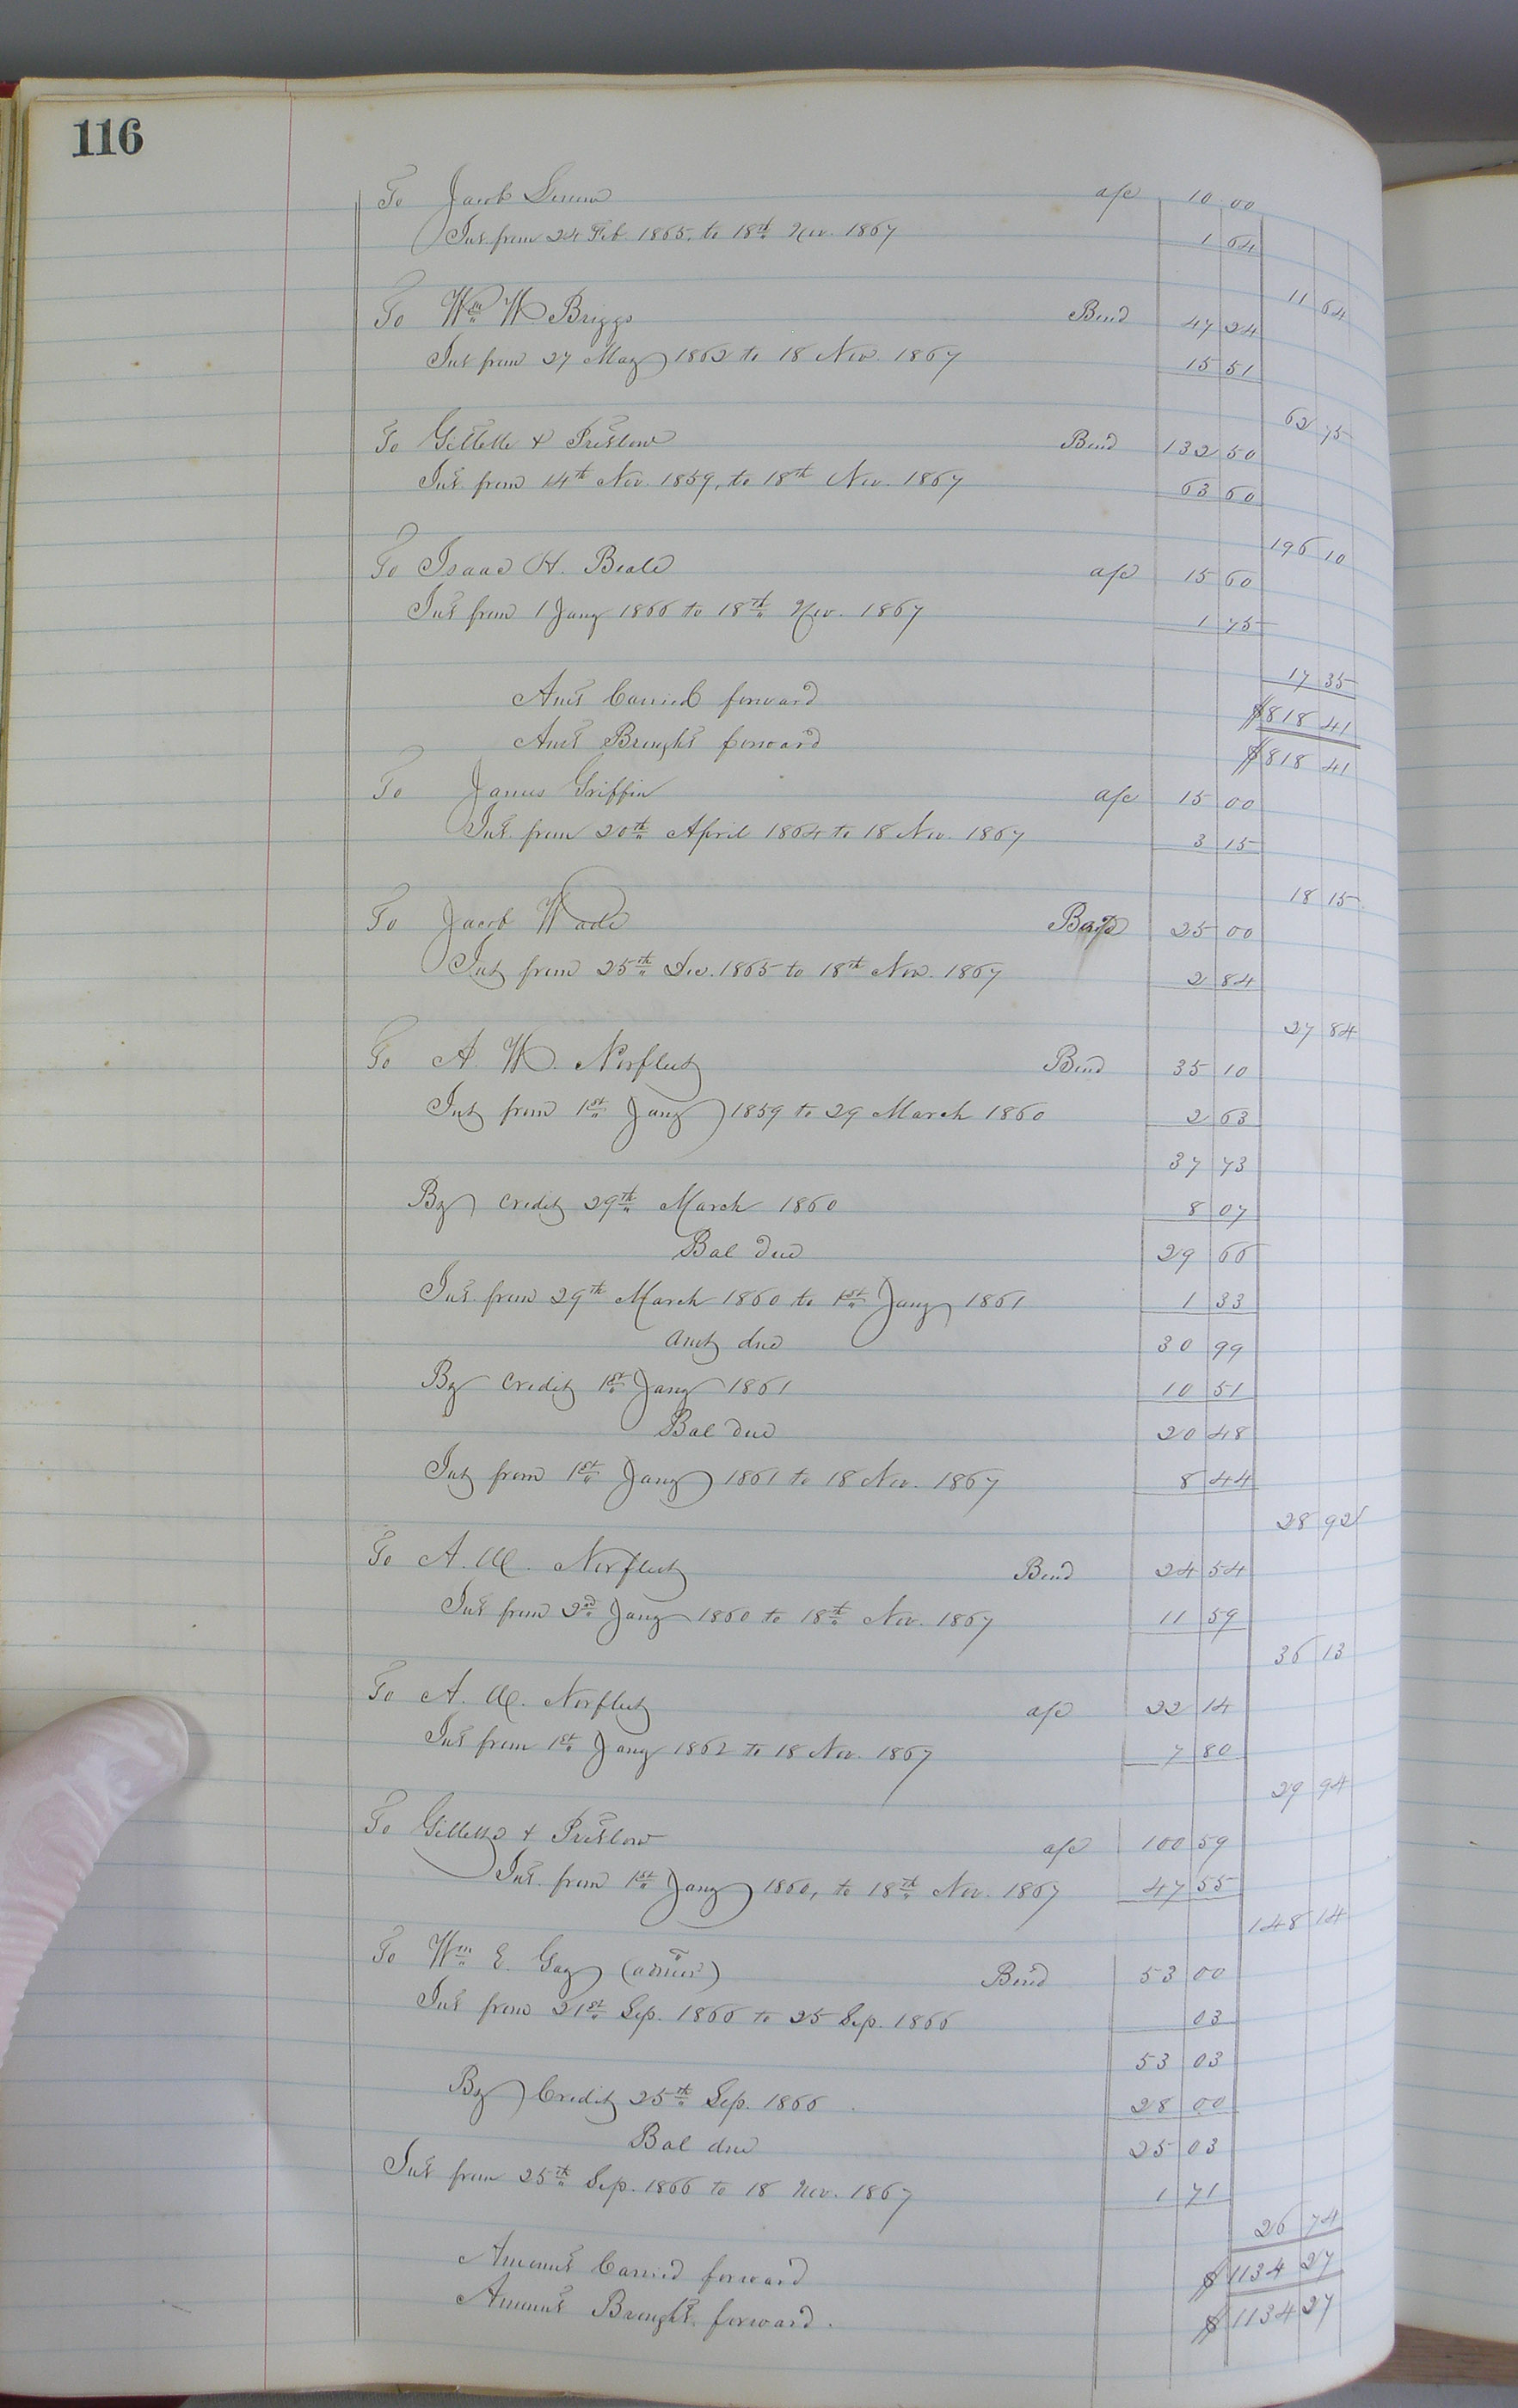 116
To Jacob a/c 10 00
Int from 24 Feb. 1865, to 18th Nov. 1867 1 64
11 64
To Wm W Briggs Bond 47 24
Int from 27 May 1862 to 18 Nov. 1867 15 51
62 75
To Gillette & Pretlow Bond 132 50
Int. from 14th Nov. 1859, to 18th Nov. 1867 63 60
196 10
To Isaac H. Beale a/c 15 60
Int from 1 Jany 1866 to 18th Nov. 1867 1 75
17 35
Amt Carried forward $818 41
Amt Brought forward $818 41
To James Griffin a/c 15 00
Int. from 20th April 1864 to 18 Nov. 1867 3 15
18 15
To Jacob Wade 25 00
Int from 25th Dec. 1865 to 18th Nov. 1867 2 84
27 84
To A. W. Norfleet Bond 35 10
Int from 1st Jany 1859 to 29 March 1860 2 63
37 73
By credit 29th March 1860 8 07
Bal due 29 66
Int. from 29th March 1860 to 1st Jany 1861 1 33
amt due 30 99
By credit 1st Jany 1861 10 51
Bal due 20 48
Int from 1st Jany 1861 to 18 Nov. 1867 8 44
28 92
To A. W. Norfleet Bond 24 54
Int from 2nd Jany 1860 to 18th Nov. 1867 11 59
36 13
To A. W. Norfleet a/c 22 14
Int from 1st Jany 1862 to 18 Nov. 1867 7 80
29 94
To Gillette & Pretlow a/c 100 59
Int. from 1st Jany 1860, to 18th Nov. 1867 47 55
148 14
To Wm E. Gay Bond 53 00
Int from 21st Sep. 1866 to 25 Sep. 1866 03
53 03
By Credit 25th Sep. 1866 28 00
Bal due 25 03
Int from 25th Sep. 1866 to 18 Nov. 1867 1 71
26 74
Amount Carried forward $1134 27
Amount Brought forward. $1134 27